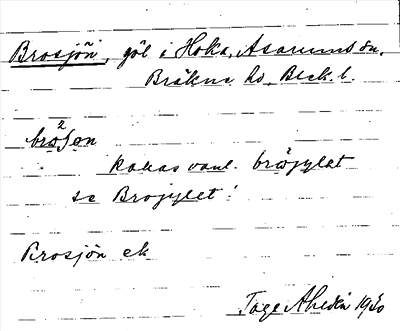 Brosjön, göl i Hoka, Asarums sn,
Bräkne hd, Blek. l.
brω²ʃøn
kallas vanl. brωjylət
se Brojylet!
Brosjön ek
Tage Ahldén 1930